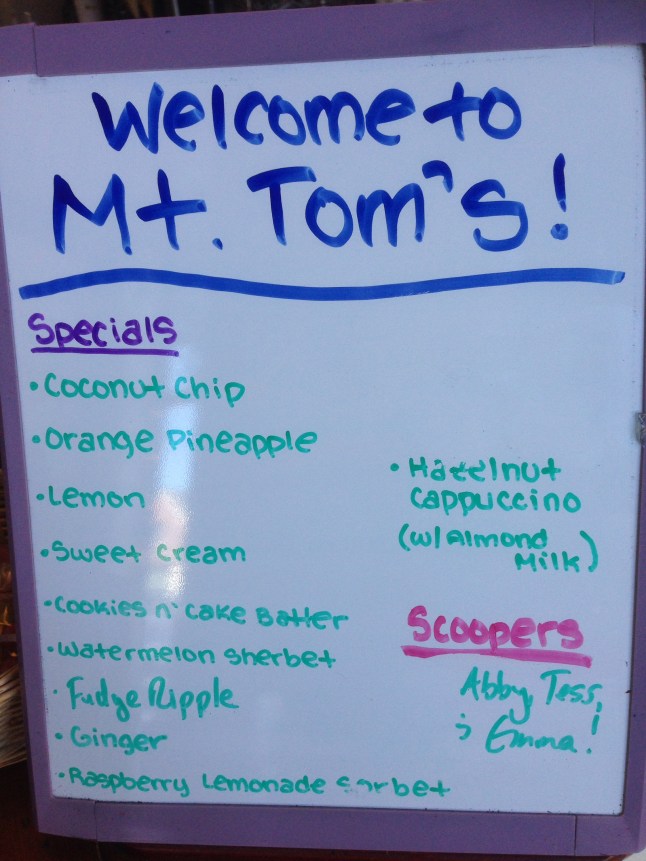 Welcome to
Mt. Tom's!
Specials
• Coconut Chip
• Orange Pineapple
• Lemon
• Sweet Cream
• Cookies n' Cake Batter
• Watermelon Sherbet
• Fudge Ripple
• Ginger
• Raspberry Lemonade Sorbet
• Hazelnut
Cappuccino
(w/ Almond
Milk)
Scoopers
Abby, Tess,
; Emma!